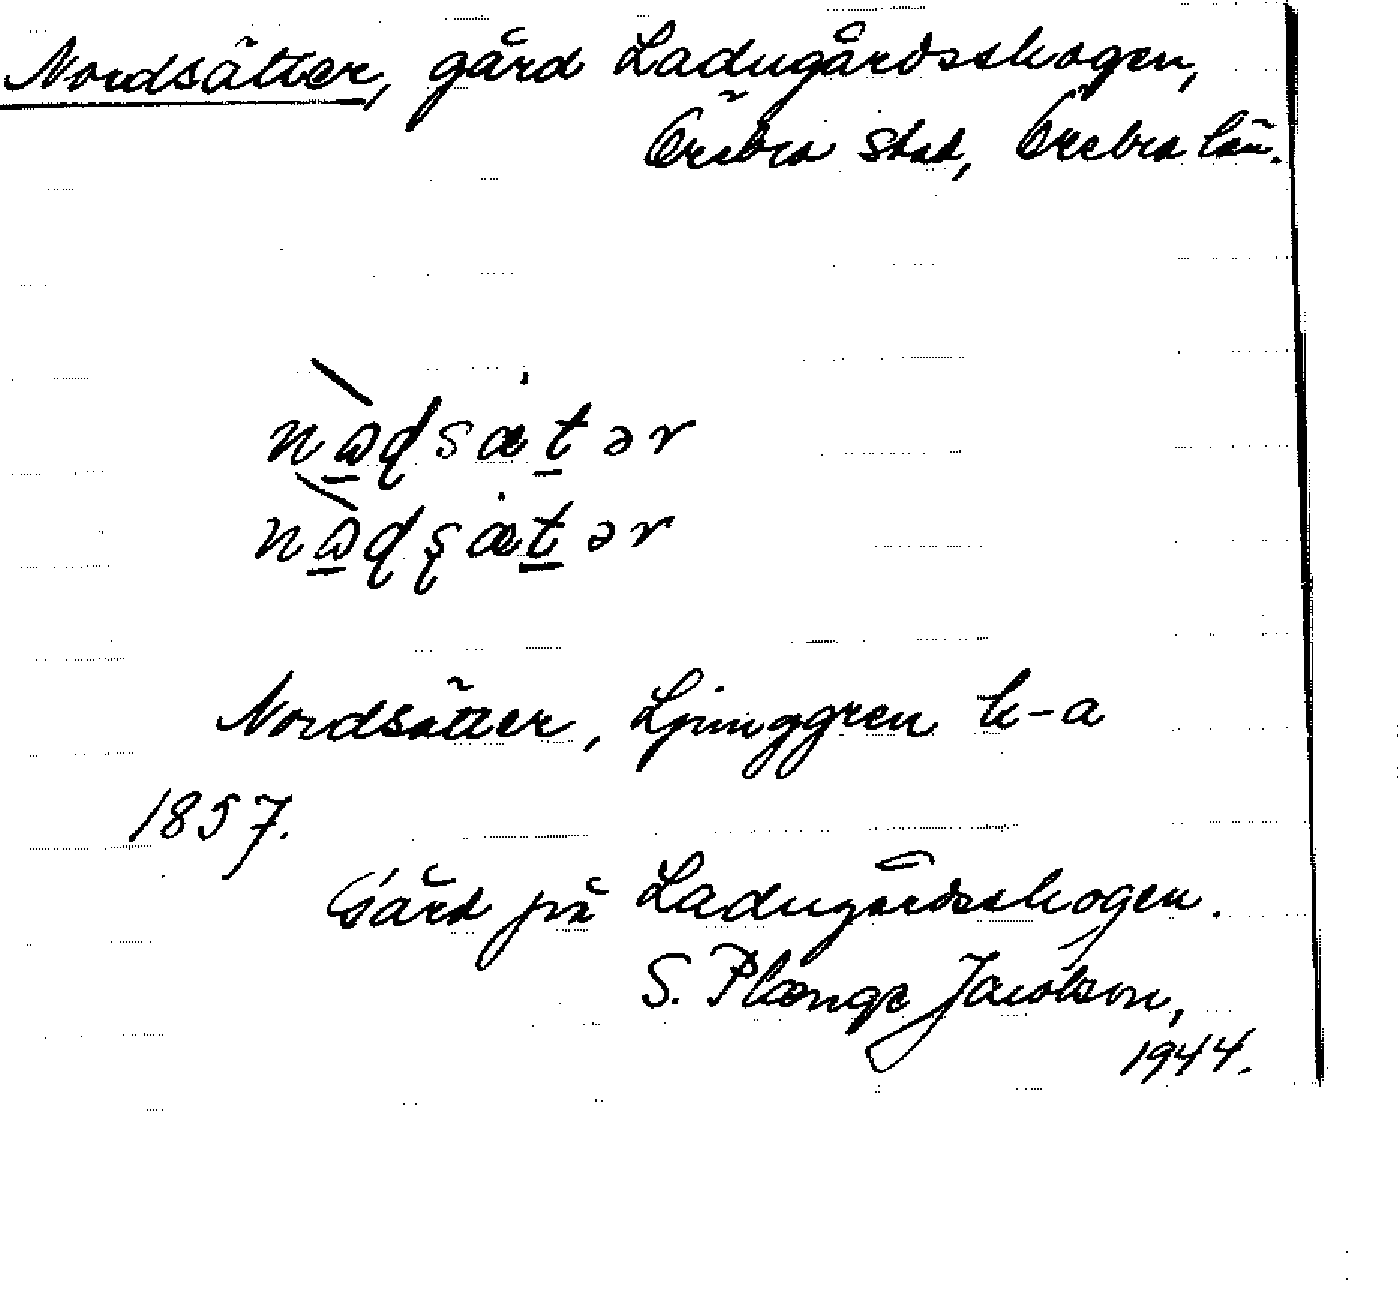 Nordsätter, gård Ladugårdsskogen,
Örebro stad, Örebro län.
nɷ̀ɖsætər
nɷ̀ɖʂætər
Nordsätter, Ljunggren k-a
1857.
Gård på Ladugårdsskogen.
S. Plænge Jacobson,
1944.